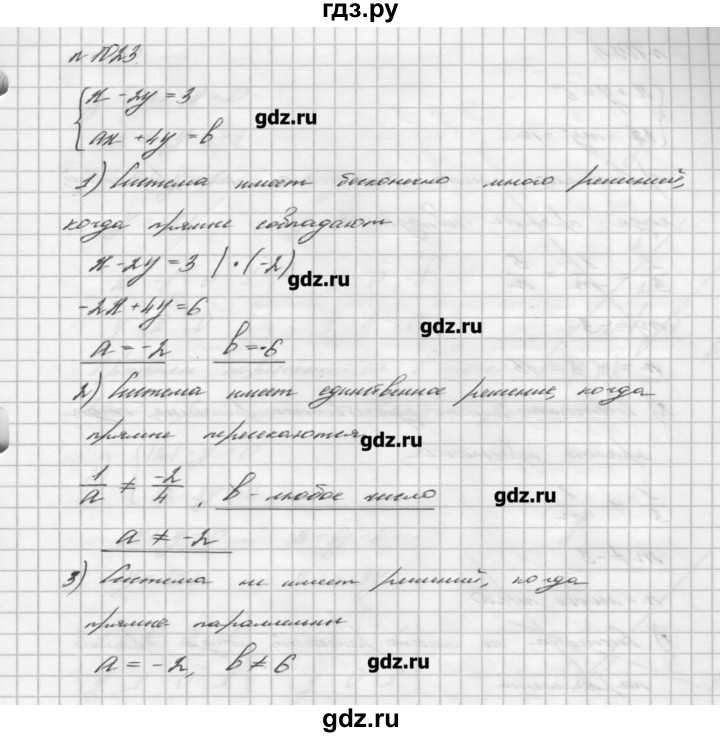 гдз.ру
n №23
x - 2y = 3
gdz.ru
ax + 4y = b
1) Система имеет бесконечно много решений,
когда прямые совпадают
x - 2y = 3 | · (-2)
gdz.ru
-2x + 4y = 6
gdz.ru
a = -2 b = -6
2) Система имеет единственное решение, когда
прямые пересекаются
gdz.ru
1/a ≠ -2/4, b - любое число
gdz.ru
a ≠ -2
3) Система не имеет решений, когда
прямые параллельны
a = -2, b ≠ 6
gdz.ru
gdz.ru